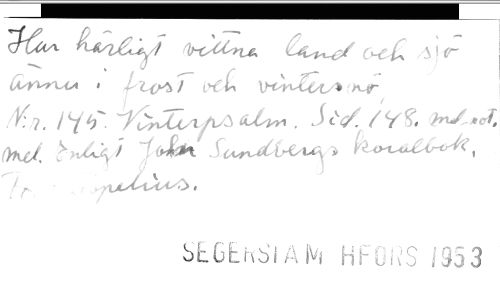 Hur härligt vittna land och sjö
ännu i frost och vintersnö,
N:r. 145. Vinterpsalm. Sid. 148. md. not.
mel. enligt John Sundbergs koralbok,
Topelius.
SEGERSTAM HFORS 1953